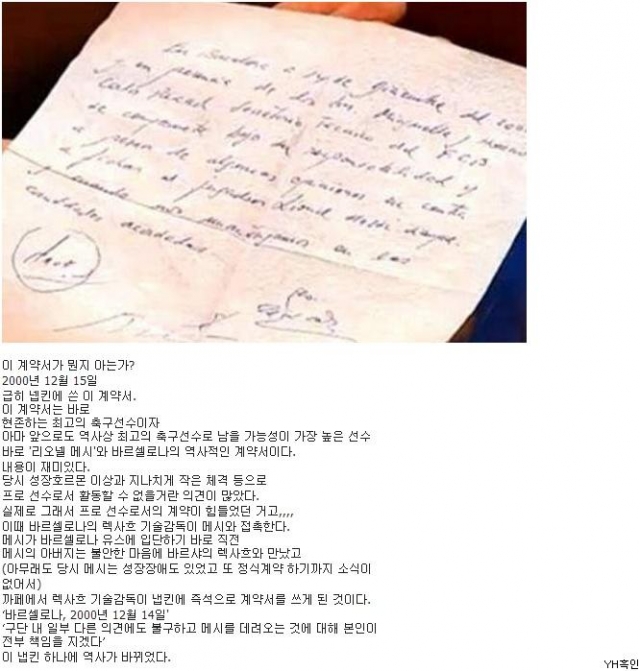 En Barcelona a 14 de Diciembre del 2000
y en presencia de los Srs. Minguella y Horacio
Carlos Rexach Secretario Técnico del F.C.B
se compromete bajo su responsabilidad y
a pesar de algunas opiniones en contra
a fichar al jugador Lionel Messi
y cuando nos mantengamos en las
cantidades acordadas
이 계약서가 뭔지 아는가?
2000년 12월 15일
급히 냅킨에 쓴 이 계약서.
이 계약서는 바로
현존하는 최고의 축구선수이자
아마 앞으로도 역사상 최고의 축구선수로 남을 가능성이 가장 높은 선수
바로 '리오넬 메시'와 바르셀로나의 역사적인 계약서이다.
내용이 재미있다.
당시 성장호르몬 이상과 지나치게 작은 체격 등으로
프로 선수로서 활동할 수 없을거란 의견이 많았다.
실제로 그래서 프로 선수로서의 계약이 힘들었던 거고,,,,
이때 바르셀로나의 렉사흐 기술감독이 메시와 접촉한다.
메시가 바르셀로나 유스에 입단하기 바로 직전
메시의 아버지는 불안한 마음에 바르샤의 렉사흐와 만났고
(아무래도 당시 메시는 성장장애도 있었고 또 정식계약 하기까지 소식이
없어서)
까페에서 렉사흐 기술감독이 냅킨에 즉석으로 계약서를 쓰게 된 것이다.
'바르셀로나, 2000년 12월 14일'
'구단 내 일부 다른 의견에도 불구하고 메시를 데려오는 것에 대해 본인이
전부 책임을 지겠다'
이 냅킨 하나에 역사가 바뀌었다.
YH흑인